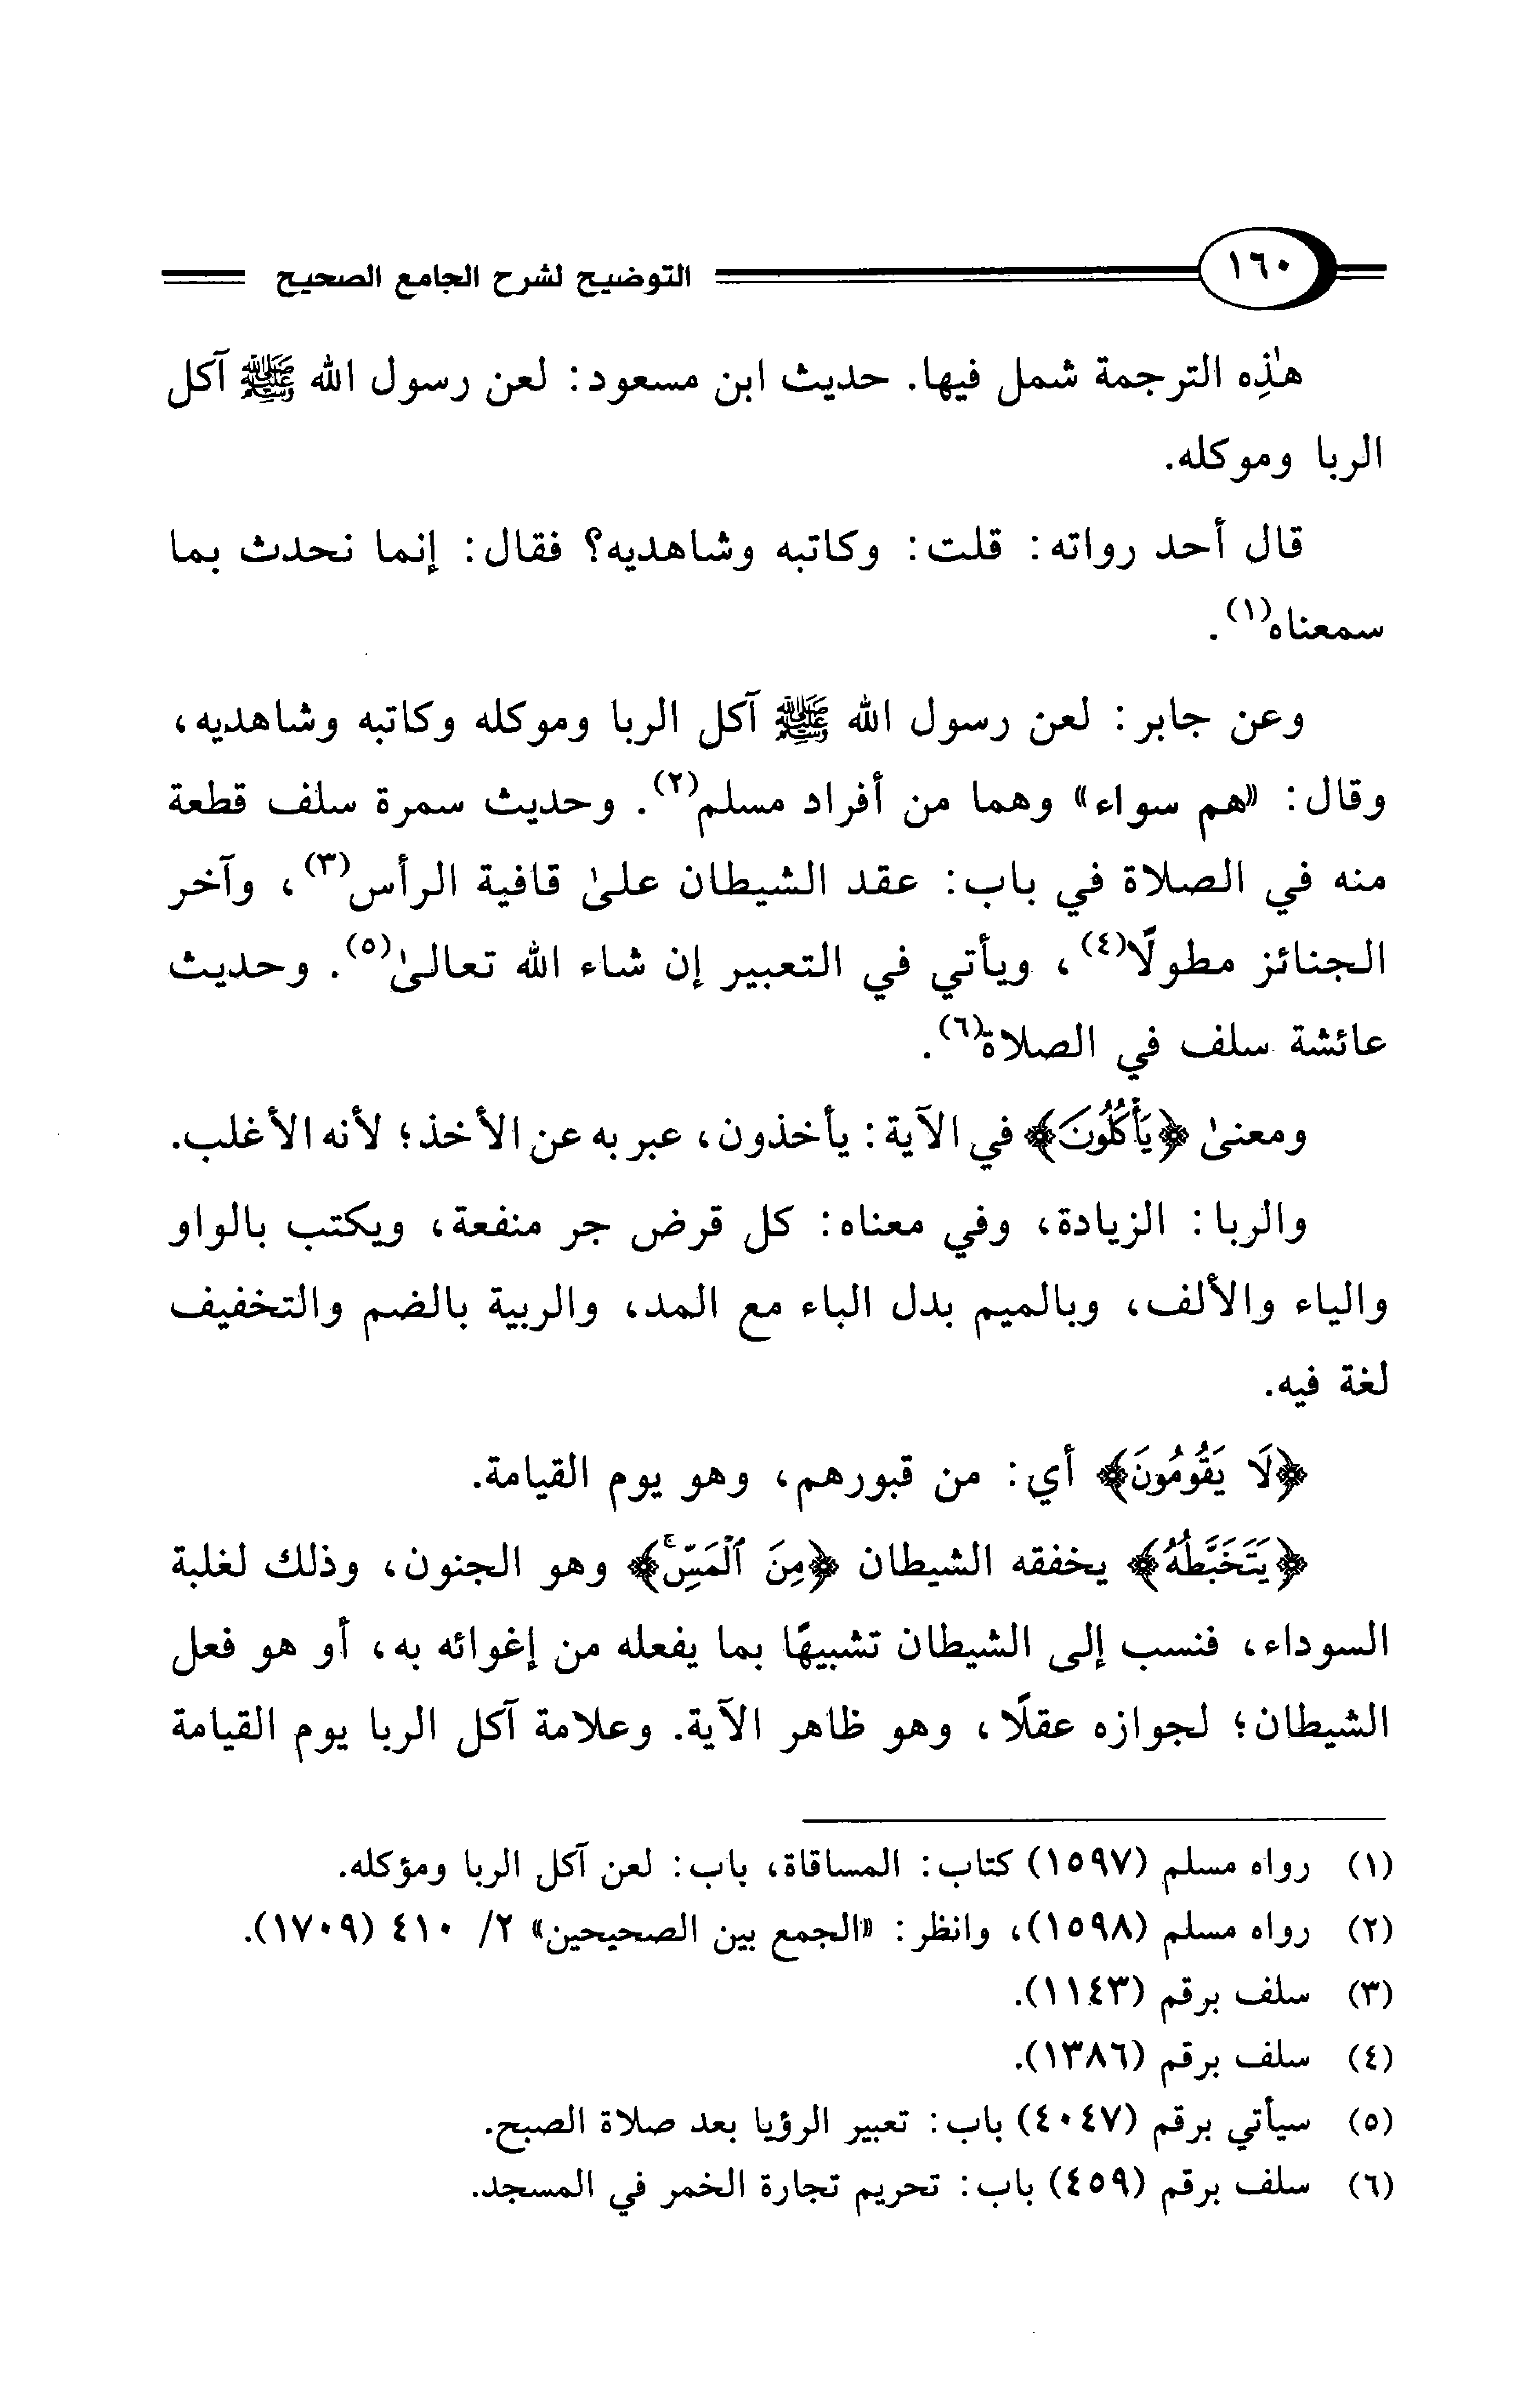 ١٦٠ التوضيح لشرح الجامع الصحيح
هٰذِه الترجمة شمل فيها. حديث ابن مسعود: لعن رسول الله ﷺ آكل
الربا وموكله.
قال أحد رواته: قلت: وكاتبه وشاهديه؟ فقال: إنما نحدث بما
سمعناه(١).
وعن جابر: لعن رسول الله ﷺ آكل الربا وموكله وكاتبه وشاهديه،
وقال: «هم سواء» وهما من أفراد مسلم(٢). وحديث سمرة سلف قطعة
منه في الصلاة في باب: عقد الشيطان علىٰ قافية الرأس(٣)، وآخر
الجنائز مطولًا(٤)، ويأتي في التعبير إن شاء الله تعالىٰ(٥). وحديث
عائشة سلف في الصلاة(٦).
ومعنىٰ ﴿يَأْكُلُونَ﴾ في الآية: يأخذون، عبر به عن الأخذ؛ لأنه الأغلب.
والربا: الزيادة، وفي معناه: كل قرض جر منفعة، ويكتب بالواو
والياء والألف، وبالميم بدل الباء مع المد، والربية بالضم والتخفيف
لغة فيه.
﴿لَا يَقُومُونَ﴾ أي: من قبورهم، وهو يوم القيامة.
﴿يَتَخَبَّطُهُ﴾ يخفقه الشيطان ﴿مِنَ ٱلْمَسِّ ۚ﴾ وهو الجنون، وذلك لغلبة
السوداء، فنسب إلى الشيطان تشبيهًا بما يفعله من إغوائه به، أو هو فعل
الشيطان؛ لجوازه عقلًا، وهو ظاهر الآية. وعلامة آكل الربا يوم القيامة
(١) رواه مسلم (١٥٩٧) كتاب: المساقاة، باب: لعن آكل الربا ومؤكله.
(٢) رواه مسلم (١٥٩٨)، وانظر: «الجمع بين الصحيحين» ٢/ ٤١٠ (١٧٠٩).
(٣) سلف برقم (١١٤٣).
(٤) سلف برقم (١٣٨٦).
(٥) سيأتي برقم (٤٠٤٧) باب: تعبير الرؤيا بعد صلاة الصبح.
(٦) سلف برقم (٤٥٩) باب: تحريم تجارة الخمر في المسجد.